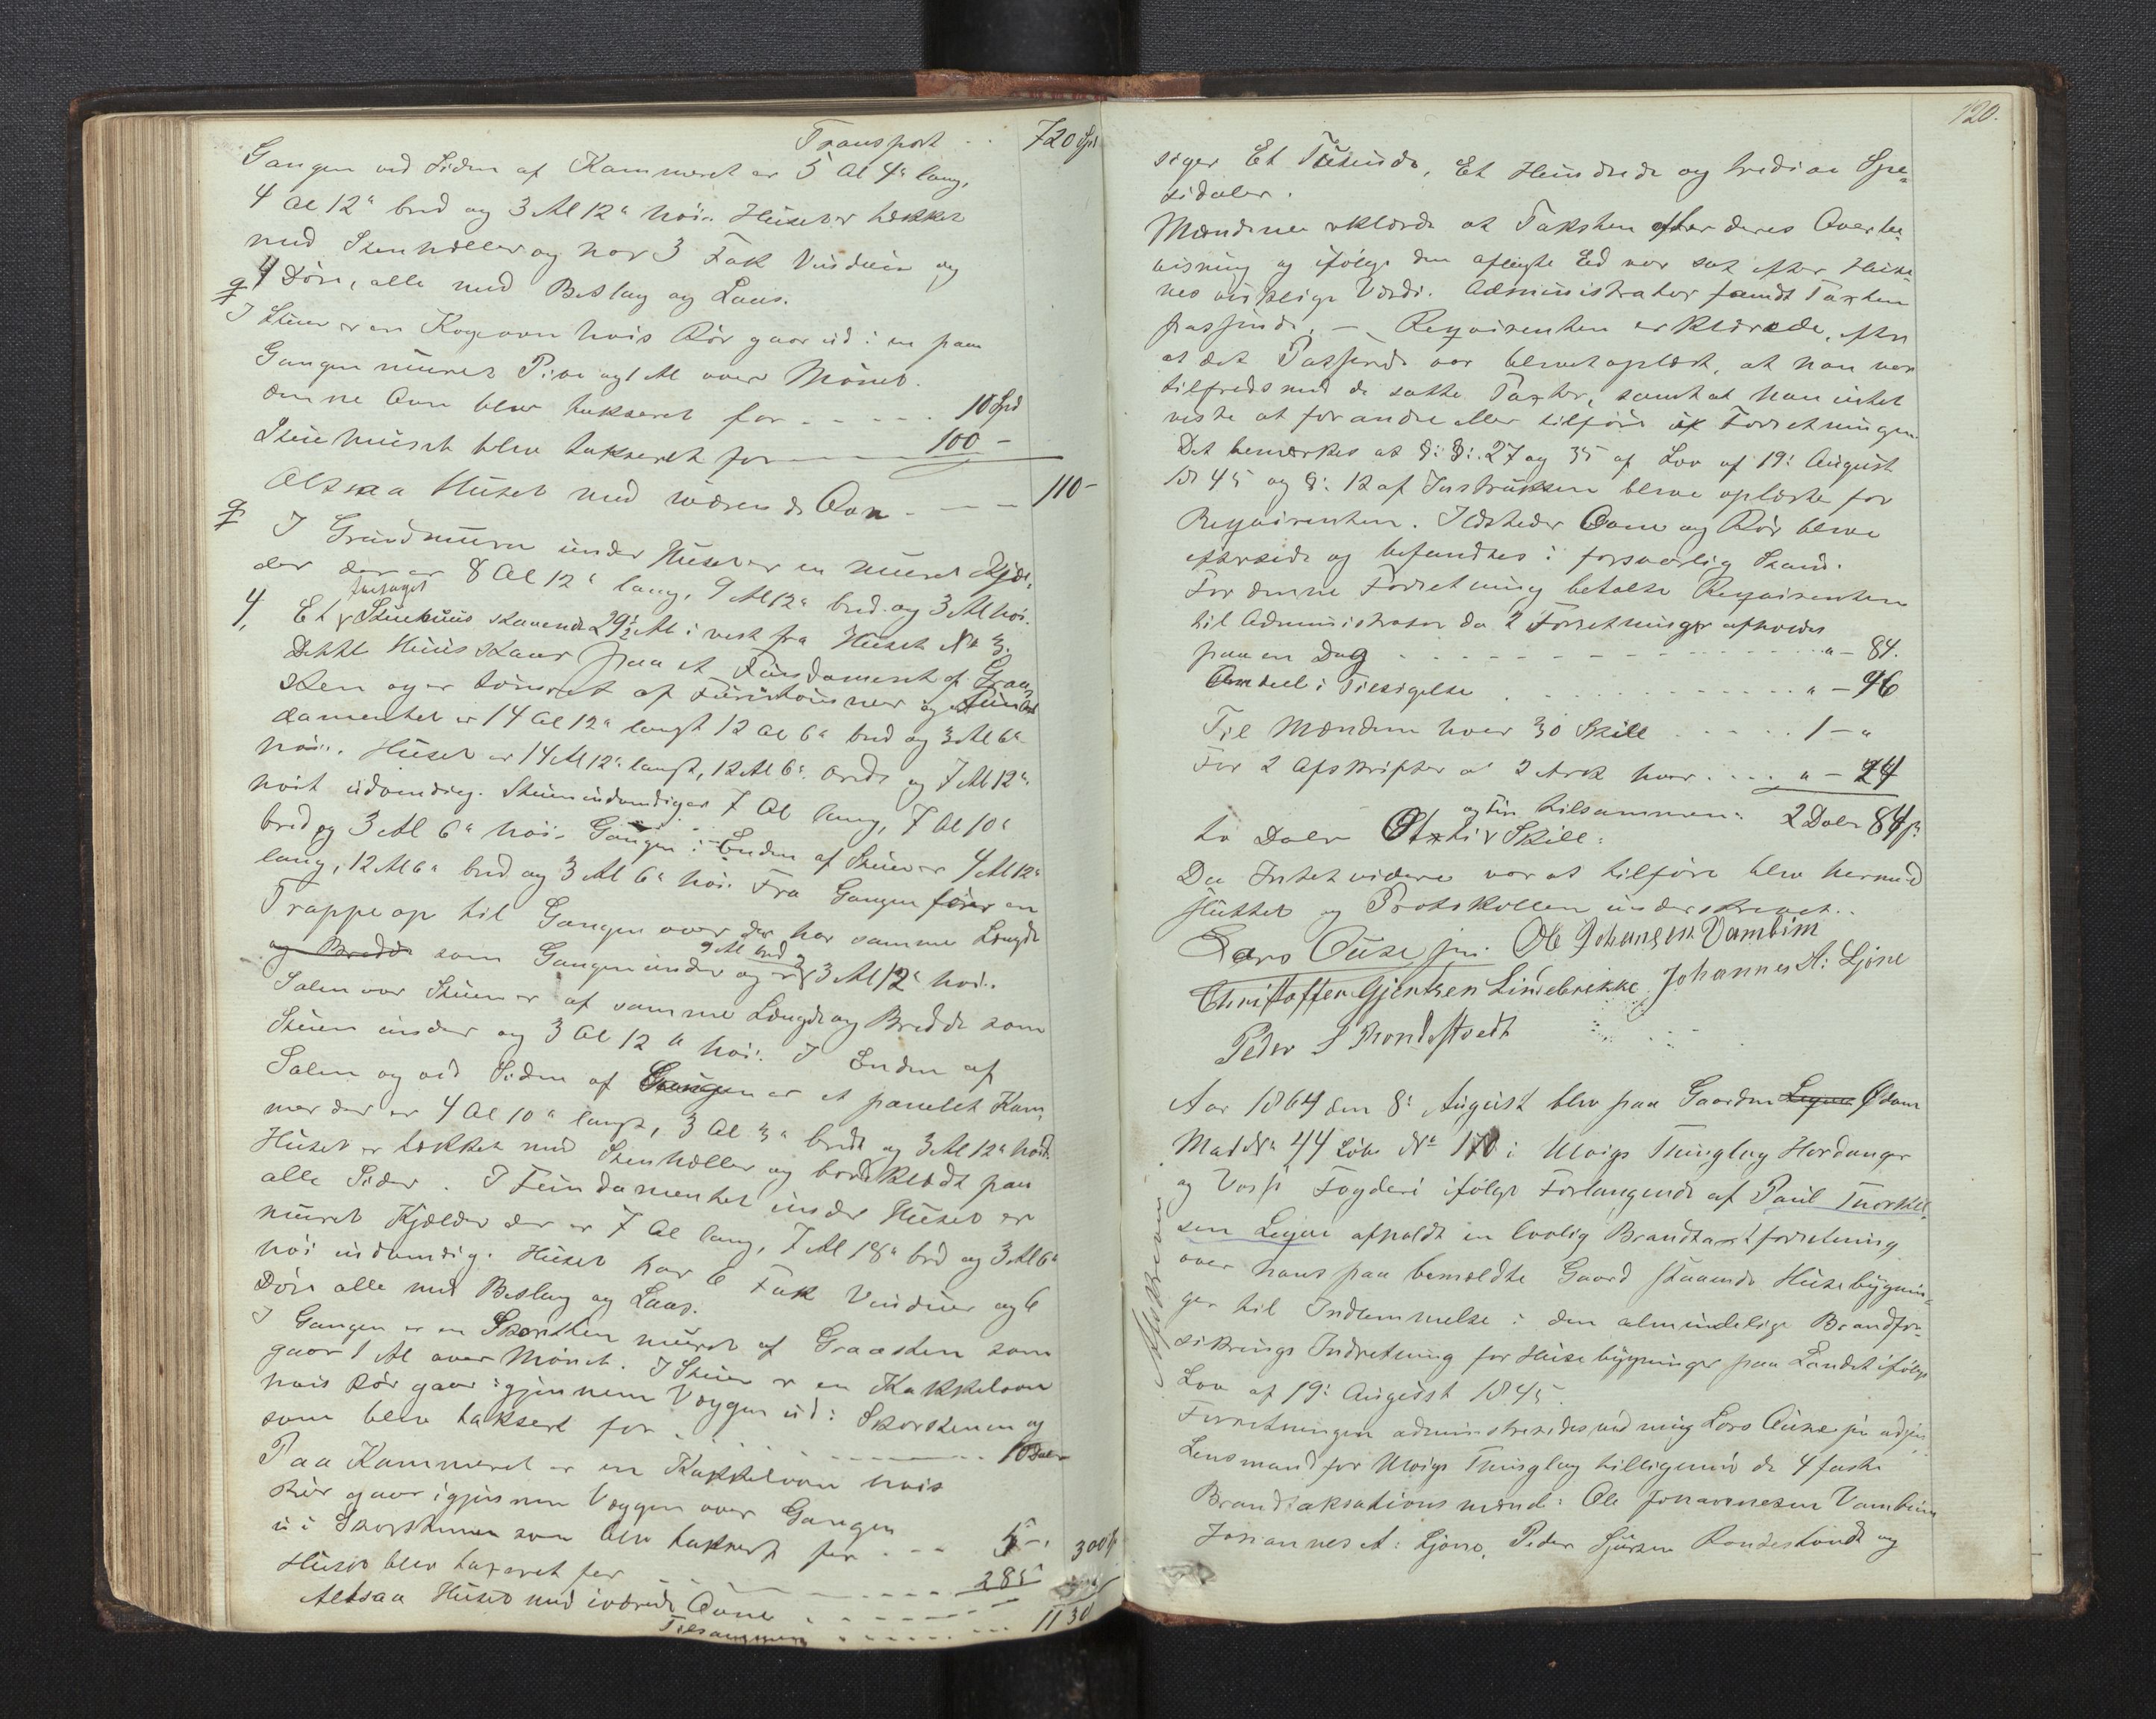 Transport - - 720 Spd
Gangen ved Siden af Kammeret er 5 Al 4" lang,
4 Al 12" bred og 3 Al 12" høi. Huset er tækket
med Stenheller og har 3 Fak Vinduer og
4 Døre, alle med Beslag og Laas.
I Stuen er en Kogeovn hvis Rør gaar ud i en paa
Gangen muret Pibe og 1 Al over Mønet.
denne Ovn blev takseret for - - - - - 10 Spd
Stuehuset blev takseret for - - - 100 -
Altsaa Huset med værende Ovn - - - 110 -
I Grundmuren under Huset er en muret Kjæl-
der der er 8 Al 12" lang, 9 Al 12" bred og 3 Al høi.
4, Et toetages Stuehuus staaende 29½ Al i vest fra Huset No 3.
Dette Huus staar paa et Fundament af Graa-
sten og er tømret af Furutømmer og Fun-
damentet er 14 Al 12" langt 12 Al 6" bred og 3 Al 6"
høi. Huset er 14 Al 12" langt, 12 Al 6" bredt og 7 Al 12"
høit udvendig. Stuen indvendig er 7 Al lang, 7 Al 10"
bred og 3 Al 6" høi. Gangen i Enden af Stuen er 4 Al 12"
lang, 12 Al 6" bred og 3 Al 6" høi. Fra Gangen fører en
Trappe op til Gangen over der har samme Længde
og Bredde som Gangen under og er 9 Al bred 3 Al 12" høi.
Salen over Stuen er af samme Længde og Bredde som
Stuen under og 3 Al 12" høi. I Enden af
Salen og ved Siden af Gangen er et panelet Kam-
mer der er 4 Al 10" langt, 3 Al 3" bredt og 3 Al 12" høit.
Huset er tækket med Stenheller og bordklædt paa
alle Sider. I Fundamentet under Huset er
muret Kjelder der er 7 Al lang, 7 Al 18" bred og 3 Al 6"
høi indvendig. Huset har 6 Fak Vinduer og 6
Døre alle med Beslag og Laas.
I Gangen er en Skorsten muret af Graasten som
gaar 1 Al over Mønet. I Stuen er en Kakkelovn
hvis Rør gaar igjennem Væggen ud i Skorstenen og
som blev taksert for - - - - - - 10 Daler
Paa Kammeret er en Kakkelovn hvis
Rør gaar igjennem Væggen over Gangen
i Skorstenen som blev taksert for - - 5 -
Huset blev taxeret for - - - - 285
Altsaa Huset med iværende Ovne - - - - - 300
Tilsammen - - - - - - 1130
120.
siger Et Tusinde, Et Hundrede og tredive Spe-
sidaler.
Mændene erklærede at Taksten efter deres Overbe-
visning og ifølge den aflagte Ed var sat efter Huse-
nes virkelige Værdi. Administrator fandt Taxten
passende. - Reqvirenten erklærede, efter
at det Passerede var blevet oplæst, at han var
tilfreds med de satte Taxter, samt at han intet
viste at forandre eller tilføie ved Forretningen.
Det bemærkes at §: §: 27 og 35 af Lov af 19: August
1845 og §: 12 af Instruksen bleve oplæste for
Reqvirenten. Ildsteder Ovne og Rør bleve
efterseede og befandtes i forsvarlig Stand.
For denne Forretning betalte Reqvirenten
til Administrator da 2 Forretninger afholdes
paa en Dag - - - - - - - - - " - 84.
Andeel i Tilsigelse - - - - - - " - 96
Til Mændene hver 30 Skill - - - - - 1 - "
For 2 Afskrifter a 2 Ark hver - - - - " - 24
tilsammen: 2 Daler 84 s.
to Daler Otti og fire Skill:
Da Intet videre var at tilføre blev hermed
sluttet og Protokollen underskrevet.
Lars Ouse jun. Ole Johansen Vambeim
Christoffer Gjertsen Lindebrekke. Johannes A: Ljone
Peder S Rondestvedt
Aar 1864 den 8: August blev paa Gaarden Legne Ødven
Mat No 44 Løbe No 170 i Ulvigs Thinglag Hardanger
og Voss Fogderi ifølge Forlangende af Paul Thorkel-
sen Legne afholdt en lovlig Brandtaxtforretning
over hans paa bemældte Gaard staaende Husebygnin-
ger til Indlemmelse i den almindelige Brandfor-
sikrings Indretning for Husebygninger paa Landet ifølge
Lov af 19: August 1845.
Forretningen administreredes ved mig Lars Ouse ju adju
Lensmand for Ulvigs Thinglag tilligemed de 4 faste
Brandtaksationsmænd: Ole Johannesen Vambeim
Johannes A: Ljono, Peder Sjursen Rondestvedt og
Afskreven